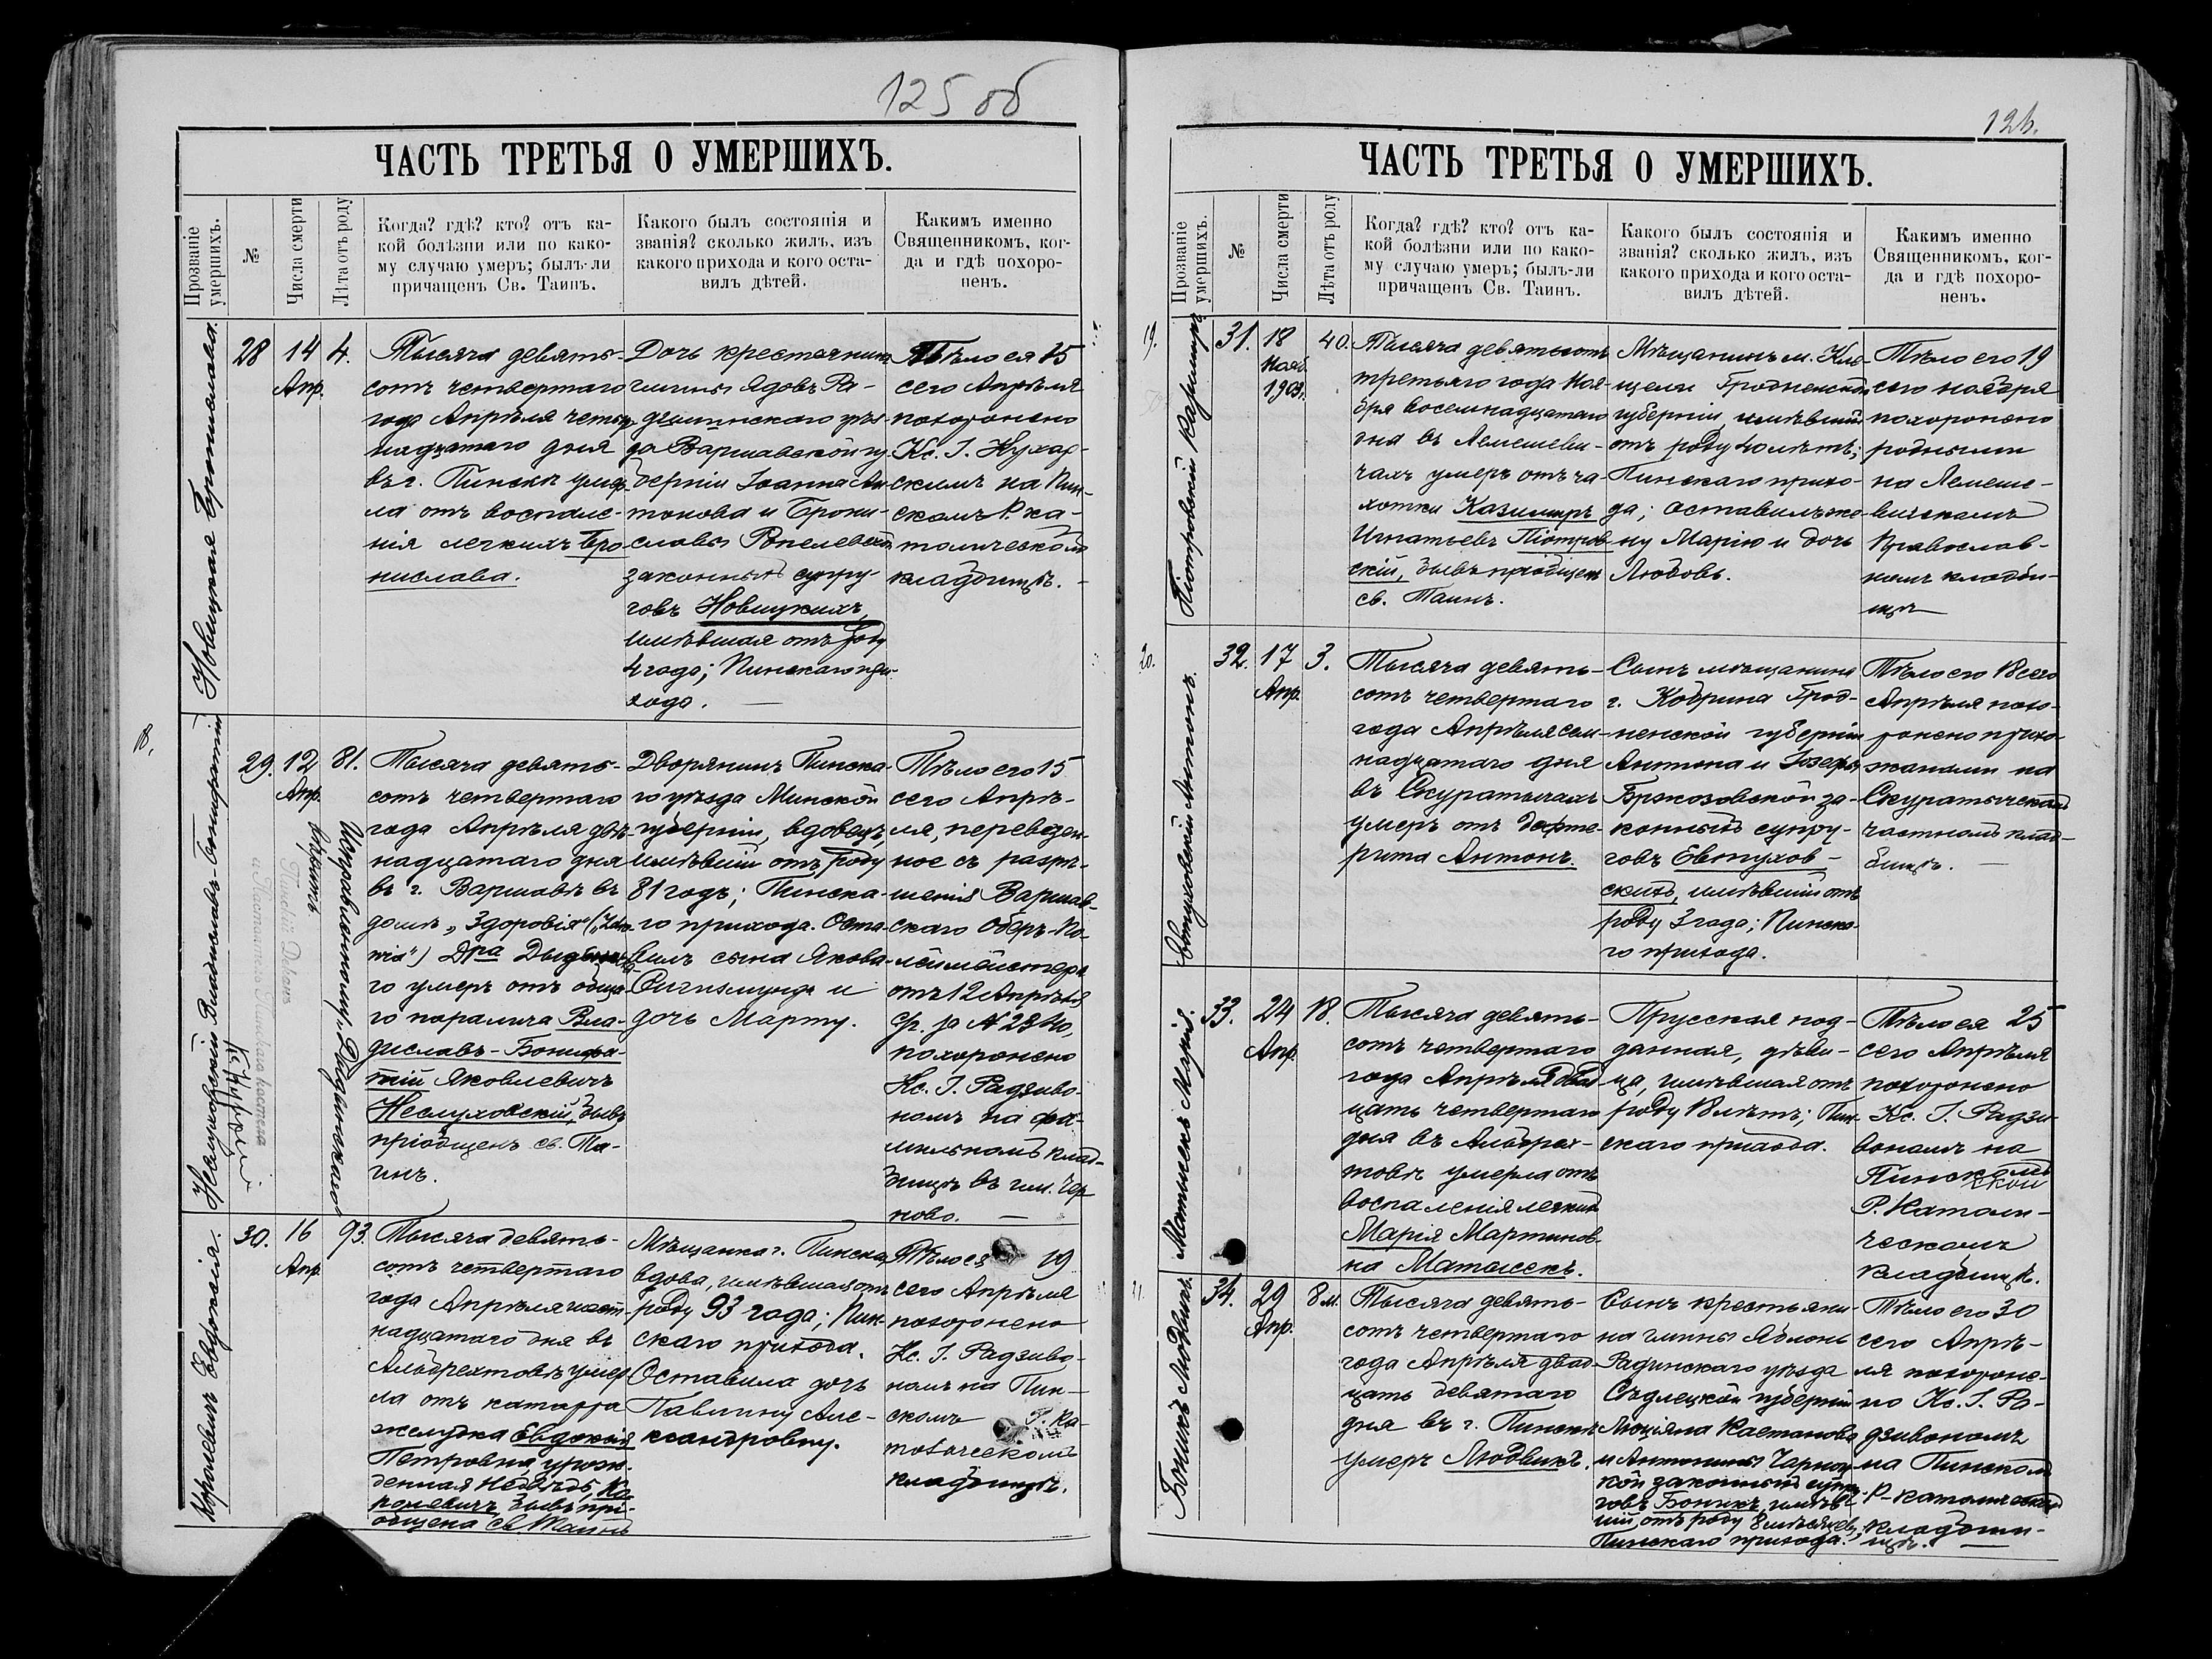 125 об
ЧАСТЬ ТРЕТЬЯ О УМЕРШИХЪ.
Прозваніе умершихъ.
№
Числа смерти
Лѣта отъ роду
Когда? гдѣ? кто? отъ ка-
кой болѣзни или по како-
му случаю умеръ; былъ-ли
причащенъ Св. Таинъ.
Какого былъ состоянія и
званія? сколько жилъ, изъ
какого прихода и кого оста-
вилъ дѣтей.
Какимъ именно
Священникомъ, ког-
да и гдѣ похоро-
ненъ.
Новицкая Бронислава.
28
14
Апр.
4.
Тысяча девять-
сотъ четвертаго
года Апрѣля четыр-
надцатаго дня
въ г. Пинскѣ умер-
ла отъ воспале-
нія легкихъ Бро-
нислава.
Дочь крестьянина
гмины Ядовъ Ра-
дзиминскаго уѣз-
да Варшавской гу-
берніи Іоанна Ан-
тонова и Брони-
славы
законныхъ супру-
говъ Новицкихъ,
имѣвшая отъ роду
4 года; Пинскаго при-
хода.
Тѣло ея 15
сего Апрѣля
похоронено
Кс. І. Кухар-
скимъ на Пин-
скомъ Р. ка-
толическомъ
кладбищѣ.
18.
Неслуховскій Владиславъ-Бонифатій
29.
12
Апр.
81.
Исправленному „Дыдынскаго“
вѣрить
Пинскій Деканъ
и Настоятель Пинскаго костела
Тысяча девять-
сотъ четвертаго
года Апрѣля двѣ-
надцатаго дня
въ г. Варшавѣ въ
домѣ „Здоровія“
Дра Дыдынска-
го умеръ отъ обща-
го паралича Вла-
диславъ-Бонифа-
тій Яковлевичъ
Неслуховскій, бывъ
пріобщенъ св. Та-
инъ.
Дворянинъ Пинска-
го уѣзда Минской
губерніи, вдовецъ,
имѣвшій отъ роду
81 годъ; Пинска-
го прихода. Оста-
вилъ сына Якова-
Сигизмунда и
дочь Марту.
Тѣло его 15
сего Апрѣ-
ля, перевезен-
ное съ разрѣ-
шенія Варшав-
скаго Оберъ-По-
лиймейстера
отъ 12 Апрѣля
с/г. за № 2840,
похоронено
Кс. І. Радзиво-
номъ на фа-
мильномъ клад-
бищѣ въ им. Чер-
ново.
Королевичъ Евдокія.
30.
16
Апр.
93.
Тысяча девять-
сотъ четвертаго
года Апрѣля шест-
надцатаго дня въ
Альбрехтовѣ умер-
ла отъ катарра
желудка Евдокія
Петровна, урож-
денная Недзвѣдзь, Ко-
ролевичъ, бывъ прі-
общена св. Таинъ
Мѣщанка г. Пинска,
вдова, имѣвшая отъ
роду 93 года; Пин-
скаго прихода.
Оставила дочь
Павлину Але-
ксандровну.
Тѣло ея 19
сего Апрѣля
похоронено
Кс. І. Радзиво-
номъ на Пин-
скомъ Р. Ка-
толическомъ
кладбищѣ.
126.
ЧАСТЬ ТРЕТЬЯ О УМЕРШИХЪ.
Прозваніе умершихъ.
№
Числа смерти
Лѣта отъ роду
Когда? гдѣ? кто? отъ ка-
кой болѣзни или по како-
му случаю умеръ; былъ-ли
причащенъ Св. Таинъ.
Какого былъ состоянія и
званія? сколько жилъ, изъ
какого прихода и кого оста-
вилъ дѣтей.
Какимъ именно
Священникомъ, ког-
да и гдѣ похоро-
ненъ.
19.
Піотровскій Казимиръ
31.
18
Нояб.
1903.
40.
Тысяча девятьсотъ
третьяго года Ноя-
бря восемнадцатаго
дня въ Лемешеви-
чахъ умеръ отъ ча-
хотки Казимиръ
Игнатьевъ Піотров-
скій, бывъ пріобщенъ
св. Таинъ.
Мѣщанинъ м. Кле-
щели Гродненской
губерніи, имѣвшій
отъ роду 40 лѣтъ;
Пинскаго прихо-
да; оставилъ же-
ну Марію и дочь
Любовь.
Тѣло его 19
сего ноября
похоронено
родными
на Лемеше-
вичскомъ
Православ-
номъ кладби-
щѣ
20.
Евтуховскій Антонъ.
32.
17
Апр.
3.
Тысяча девять-
сотъ четвертаго
года Апрѣля сем-
надцатаго дня
въ Скуратычахъ
умеръ отъ дифте-
рита Антонъ.
Сынъ мѣщанина
г. Кобрина Грод-
ненской губерніи
Антона и Іозефы
Бржозовской за-
конныхъ супру-
говъ Евтухов-
скихъ, имѣвшій отъ
роду 3 года; Пинска-
го прихода.
Тѣло его 18 сего
Апрѣля похо-
ронено прихо-
жанами на
Скуратычскомъ
частномъ клад-
бищѣ.
Матысекъ Марія.
33.
24
Апр.
18.
Тысяча девять-
сотъ четвертаго
года Апрѣля двад-
цать четвертаго
дня въ Альбрех-
товѣ умерла отъ
воспаленія легкихъ
Марія Мартинов-
на Матысекъ.
Прусская под-
данная, дѣви-
ца, имѣвшая отъ
роду 18 лѣтъ; Пин-
скаго прихода.
Тѣло ея 25
сего Апрѣля
похоронено
Кс. І. Радзи-
вономъ на
Пинскомъ
Р. Католи-
ческомъ
кладбищѣ.
21.
Боникъ Людвикъ.
34.
29
Апр.
8 м.
Тысяча девять-
сотъ четвертаго
года Апрѣля двад-
цать девятаго
дня въ г. Пинскѣ
умеръ Людвикъ.
Сынъ крестьяни-
на гмины Яблонь
Радинскаго уѣзда
Сѣдлецкой губерніи
Люціяна Каетанова
и Антонины
законныхъ супру-
говъ Боникъ, имѣв-
шій отъ роду 8 мѣсяцевъ;
Пинскаго прихода.
Тѣло его 30
сего Апрѣ-
ля похороне-
но Кс. І. Ра-
дзивономъ
на Пинскомъ
Р-католическомъ
кладби-
щѣ.